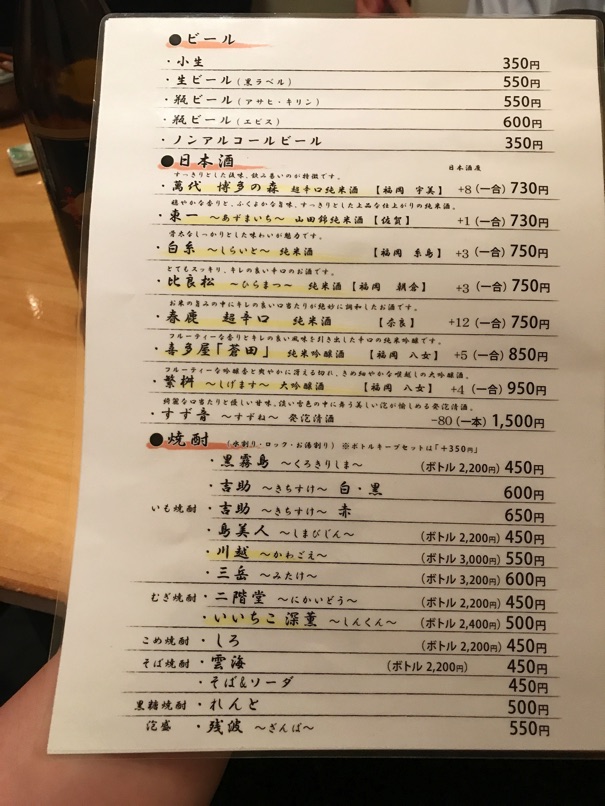 ●ビール
・小生 350円
・生ビール(黒ラベル) 550円
・瓶ビール(アサヒ・キリン) 550円
・瓶ビール(エビス) 600円
・ノンアルコールビール 350円
●日本酒 日本酒度
すっきりとした後味、飲み易いのが特徴です。
・萬代 博多の森 超辛口純米酒 【福岡 宇美】 +8(一合)730円
穏やかな香りと、ふくよかな旨味、すっきりとした上品な仕上がりの純米酒。
・東一 〜あずまいち〜 山田錦純米酒【佐賀】 +1(一合)730円
骨太なしっかりとした味わいが魅力です。
・白糸 〜しらいと〜 純米酒 【福岡 糸島】 +3(一合)750円
とてもスッキリ、キレの良い辛口のお酒です。
・比良松 〜ひらまつ〜 純米酒【福岡 朝倉】 +3(一合)750円
お米の旨みの中にキレの良い口当たりが絶妙に調和したお酒です。
・春鹿 超辛口 純米酒 【奈良】 +12(一合)750円
フルーティーな香りとキレの良い風味を引き出した辛口の純米吟醸です。
・喜多屋「蒼田」 純米吟醸酒 【福岡 八女】 +5(一合)850円
フルーティーな吟醸香と爽やかに冴える切れ、きめ細やかな喉越しの大吟醸酒。
・繁桝 〜しげます〜 大吟醸酒 【福岡 八女】 +4(一合)950円
綺麗な口当たりと優しい甘味。淡い雪色の中に舞う美しい泡が愉しめる発泡清酒。
・すず音 〜すずね〜 発泡清酒 -80(一本)1,500円
●焼酎 (水割り・ロック・お湯割り) ※ボトルキープセットは「+350円」
・黒霧島 〜くろきりしま〜 (ボトル 2,200円) 450円
・吉助 〜きちすけ〜 白・黒 600円
いも焼酎 ・吉助 〜きちすけ〜 赤 650円
・島美人 〜しまびじん〜 (ボトル 2,200円) 450円
・川越 〜かわごえ〜 (ボトル 3,000円) 550円
・三岳 〜みたけ〜 (ボトル 3,200円) 600円
むぎ焼酎 ・二階堂 〜にかいどう〜 (ボトル 2,200円) 450円
・いいちこ 深薫 〜しんくん〜 (ボトル 2,400円) 500円
こめ焼酎 ・しろ (ボトル 2,200円) 450円
そば焼酎 ・雲海 (ボトル 2,200円) 450円
・そば&ソーダ 450円
黒糖焼酎 ・れんと 500円
泡盛 ・残波 〜ざんぱ〜 550円